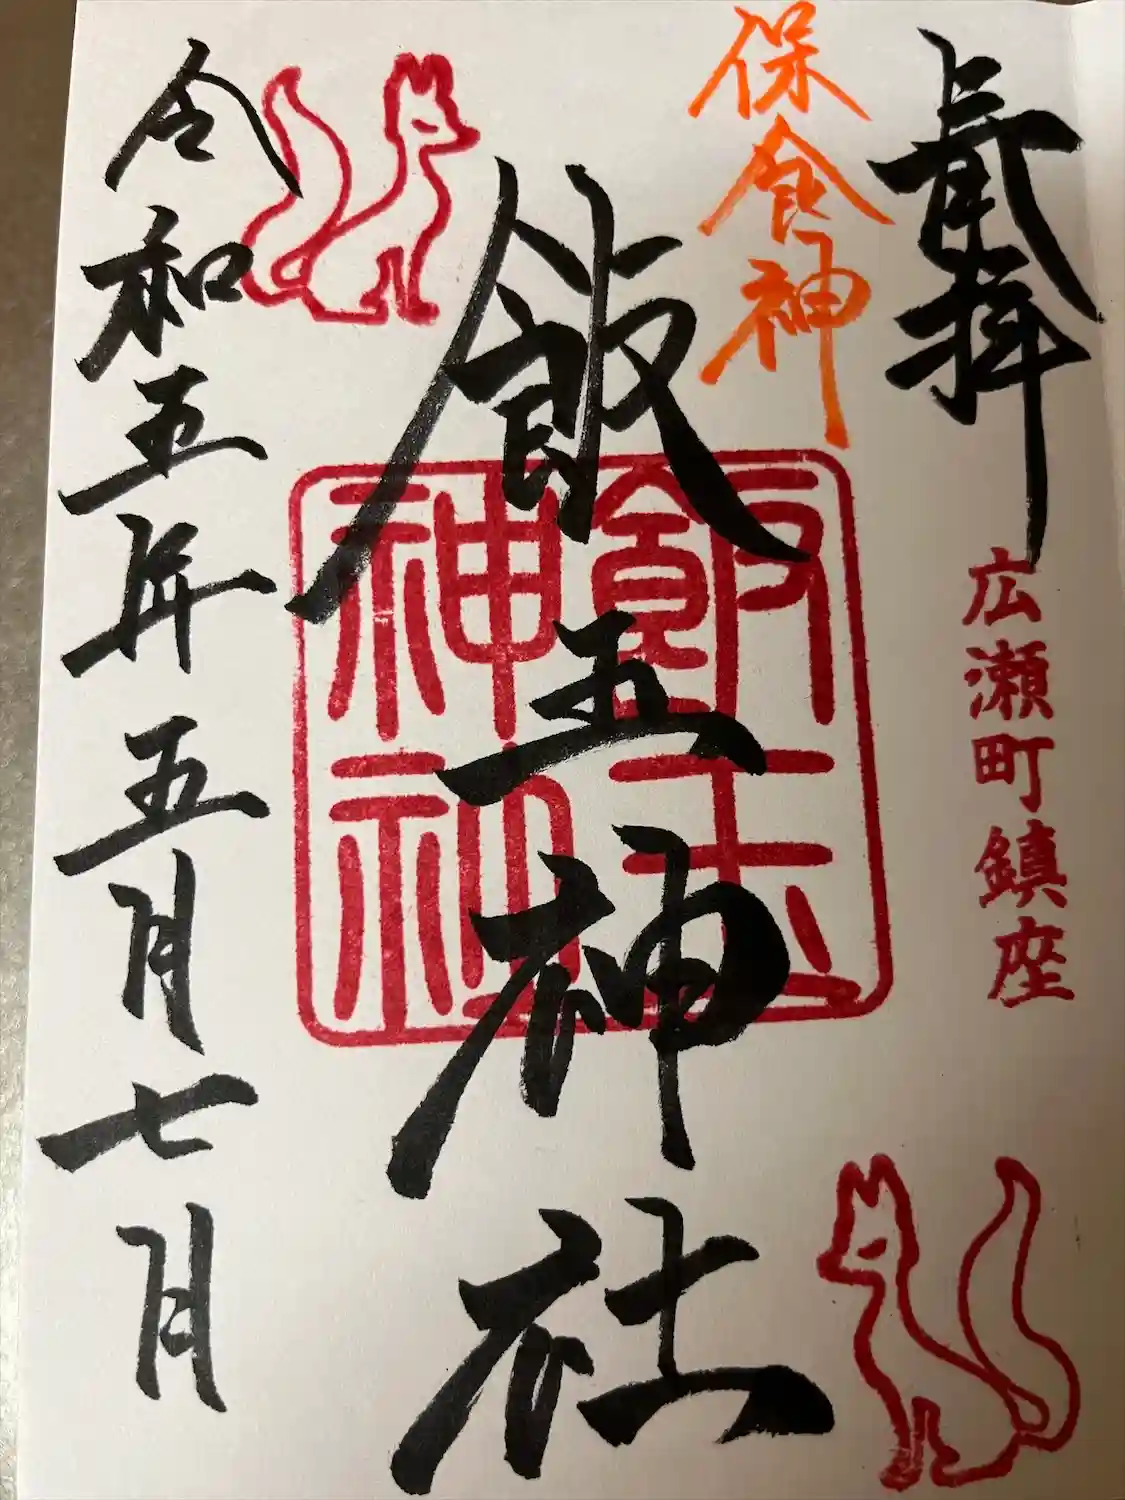 拝
広瀬町鎮座
保食神
飯玉神社
飯玉神社
令和五年五月七日